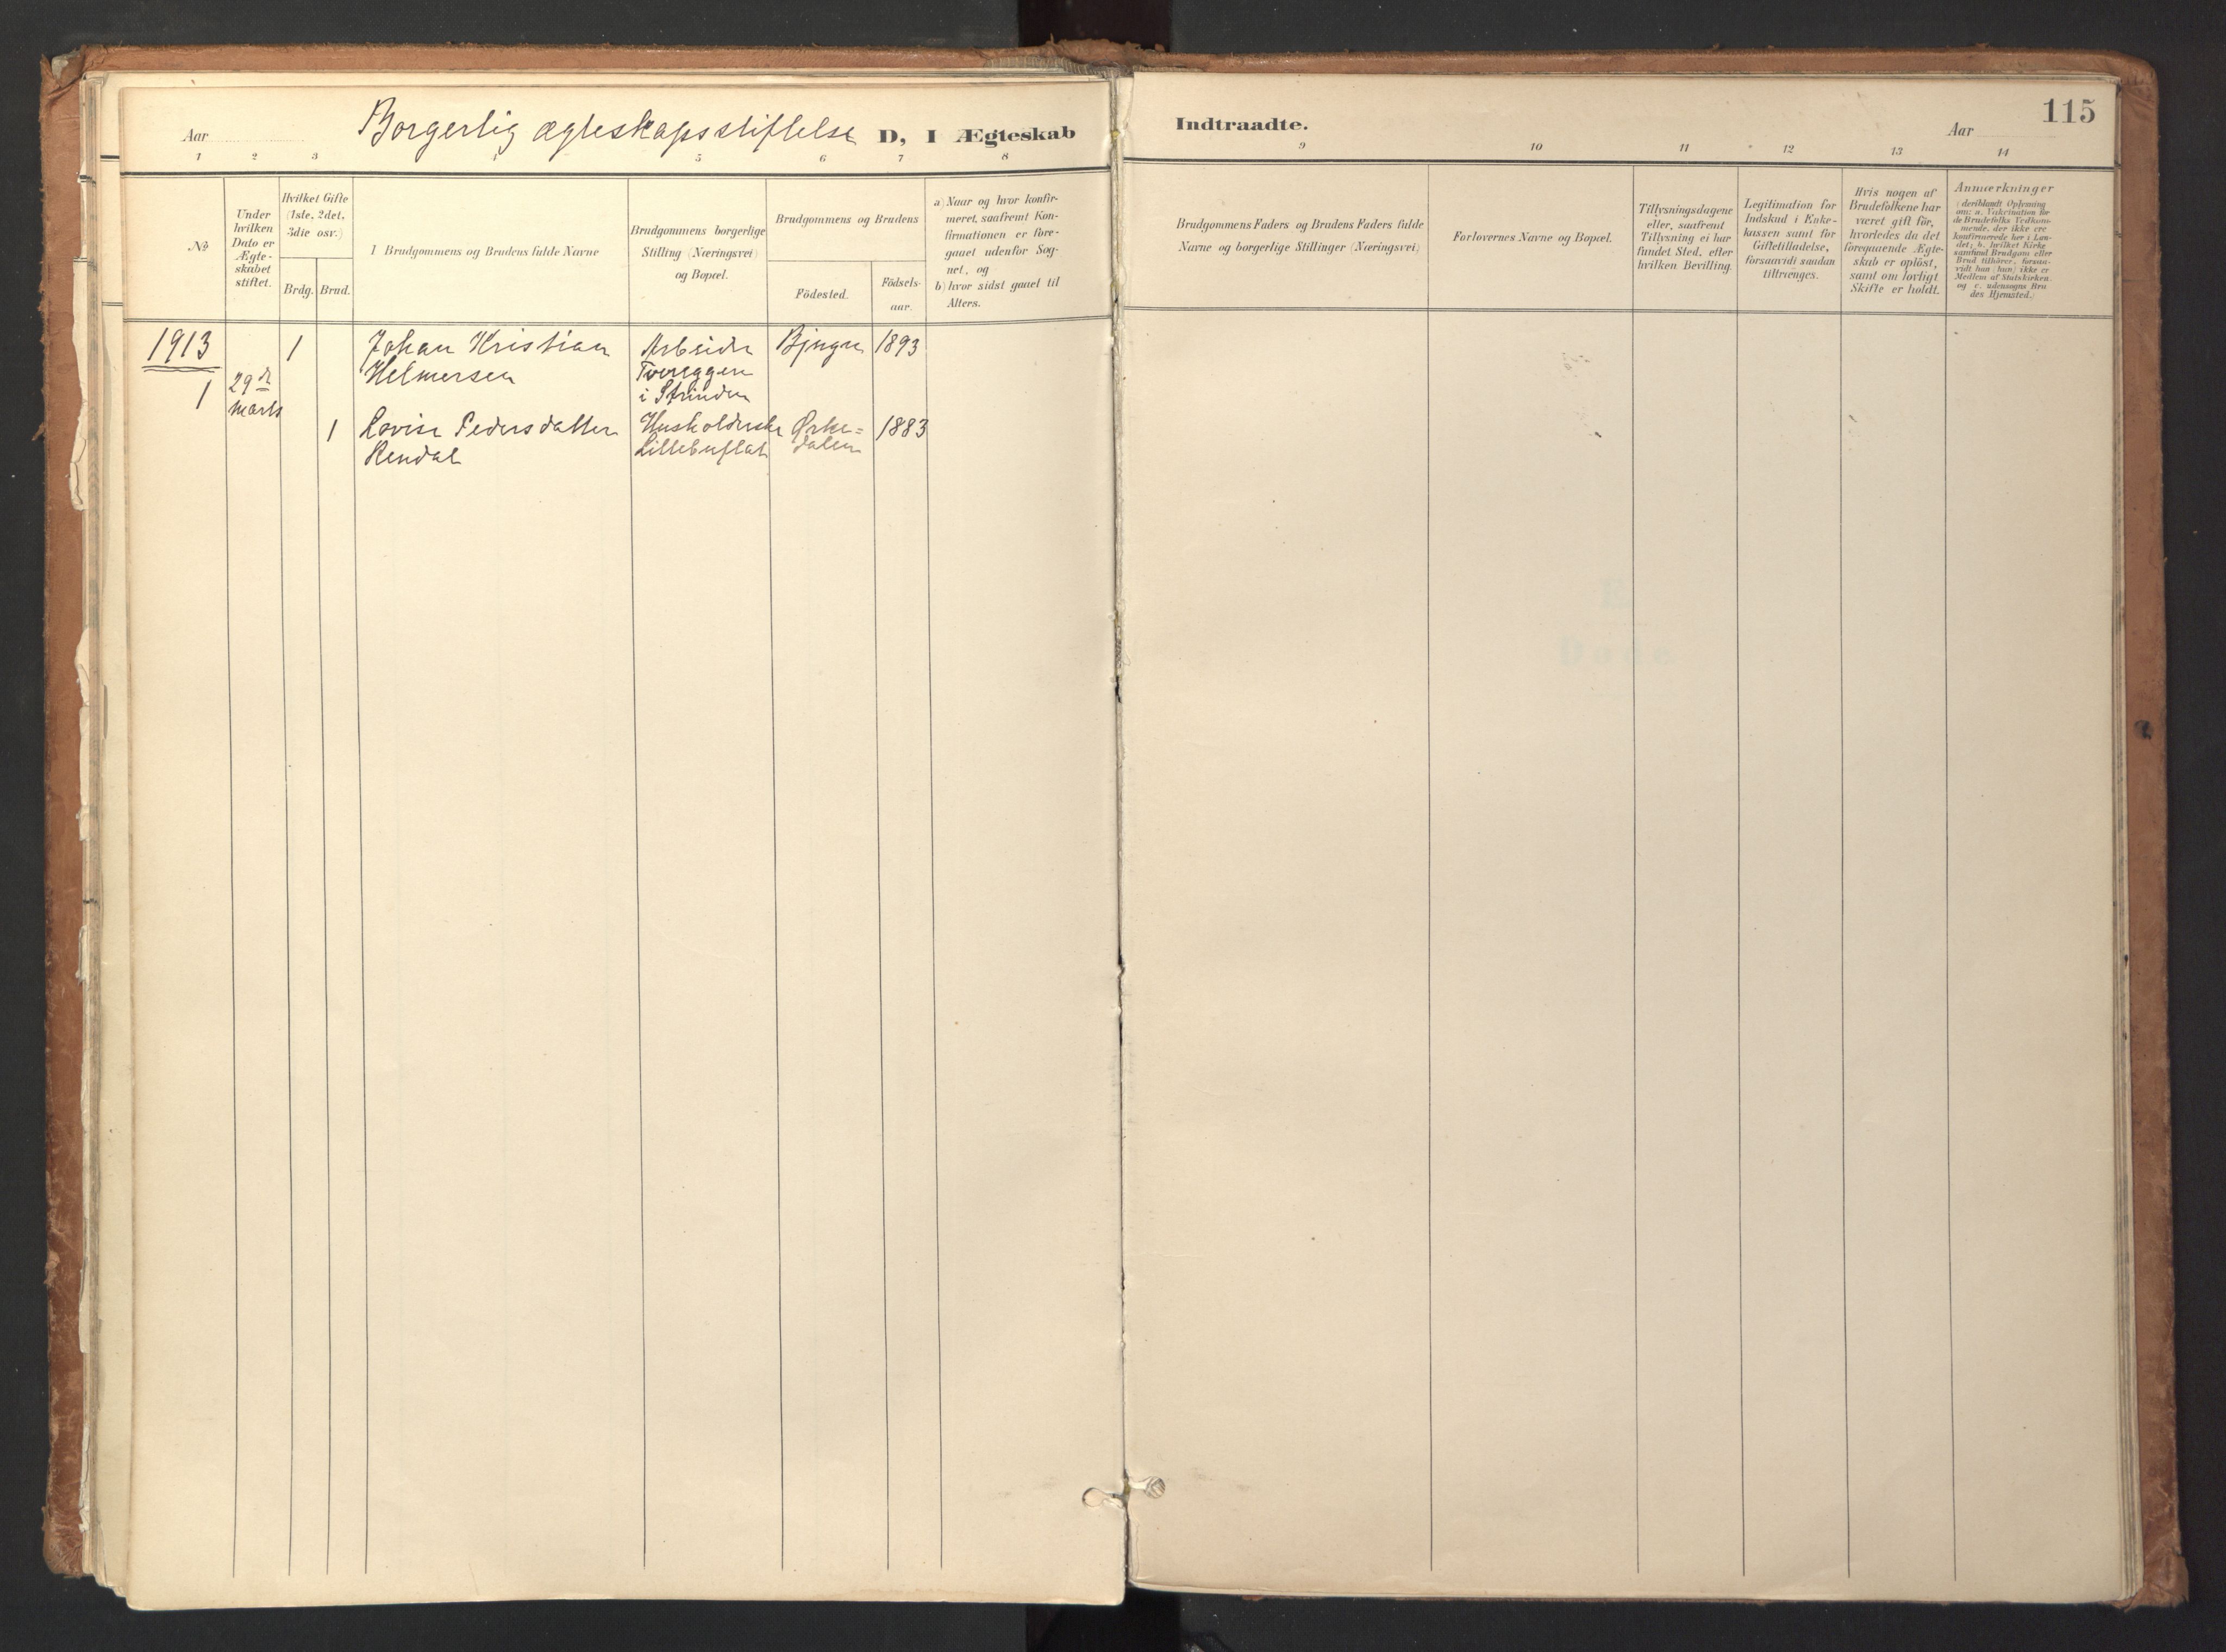 Aar
Borgerlig ægteskapsstiftelse
D, I Ægteskab
Indtraadte.
Aar
115
1 2 3 4 5 6 7 8
9 10 11 12 13 14
No
Under
hvilken
Dato er
Ægte-
skabet
stiftet.
Hvilket Gifte
(1ste, 2det,
3die osv.)
Brdg. Brud.
1 Brudgommens og Brudens fulde Navne
Brudgommens borgerlige
Stilling (Næringsvei)
og Bopæl.
Brudgommens og Brudens
Födested.
Födsels-
aar.
a) Naar og hvor konfir-
meret, saafremt Kon-
firmationen er fore-
gaaet udenfor Sog-
net, og
b) hvor sidst gaaet til
Alters.
Brudgommens Faders og Brudens Faders fulde
Navne og borgerlige Stillinger (Næringsvei)
Forlovernes Navne og Bopæl.
Tillysningsdagene
eller, saafremt
Tillysning ei har
fundet Sted, efter
hvilken Bevilling.
Legitimation for
Indskud i Enke-
kassen samt for
Giftetilladelse,
forsaavidt saadan
tiltrænges.
Hvis nogen af
Brudefolkene har
været gift för,
hvorledes da det
foregaaende Ægte-
skab er oplöst,
samt om lovligt
Skifte er holdt.
Anmærkninger
(deriblandt Oplysning
om: a. Vakcination for
de Brudefolks Vedkom-
mende, der ikke ere
konfirmerede her i Lan-
det; b. hvilket Kirke
samfund Brudgom eller
Brud tilhörer, forsaa-
vidt han (hun) ikke er
Medlem af Statskirken,
og c. udensogns Bru
des Hjemsted.)
1913
1
29de
marts
1
Johan Kristian
Helmersen
Arbeider
Tvereggen
i Strinden
Bjugn
1893
1
Lovise Pedersdatter
Rendal
Husholderske
Lillebuflat
Ørke=
dalen
1883